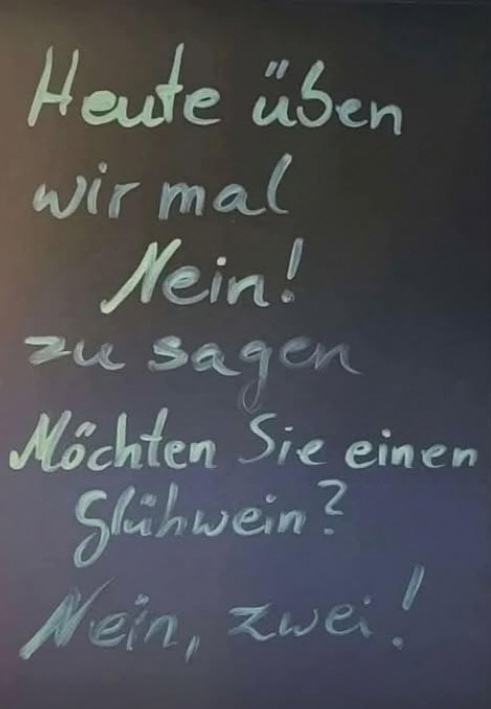 Heute üben
wir mal
Nein!
zu sagen
Möchten Sie einen
Glühwein?
Nein, zwei!